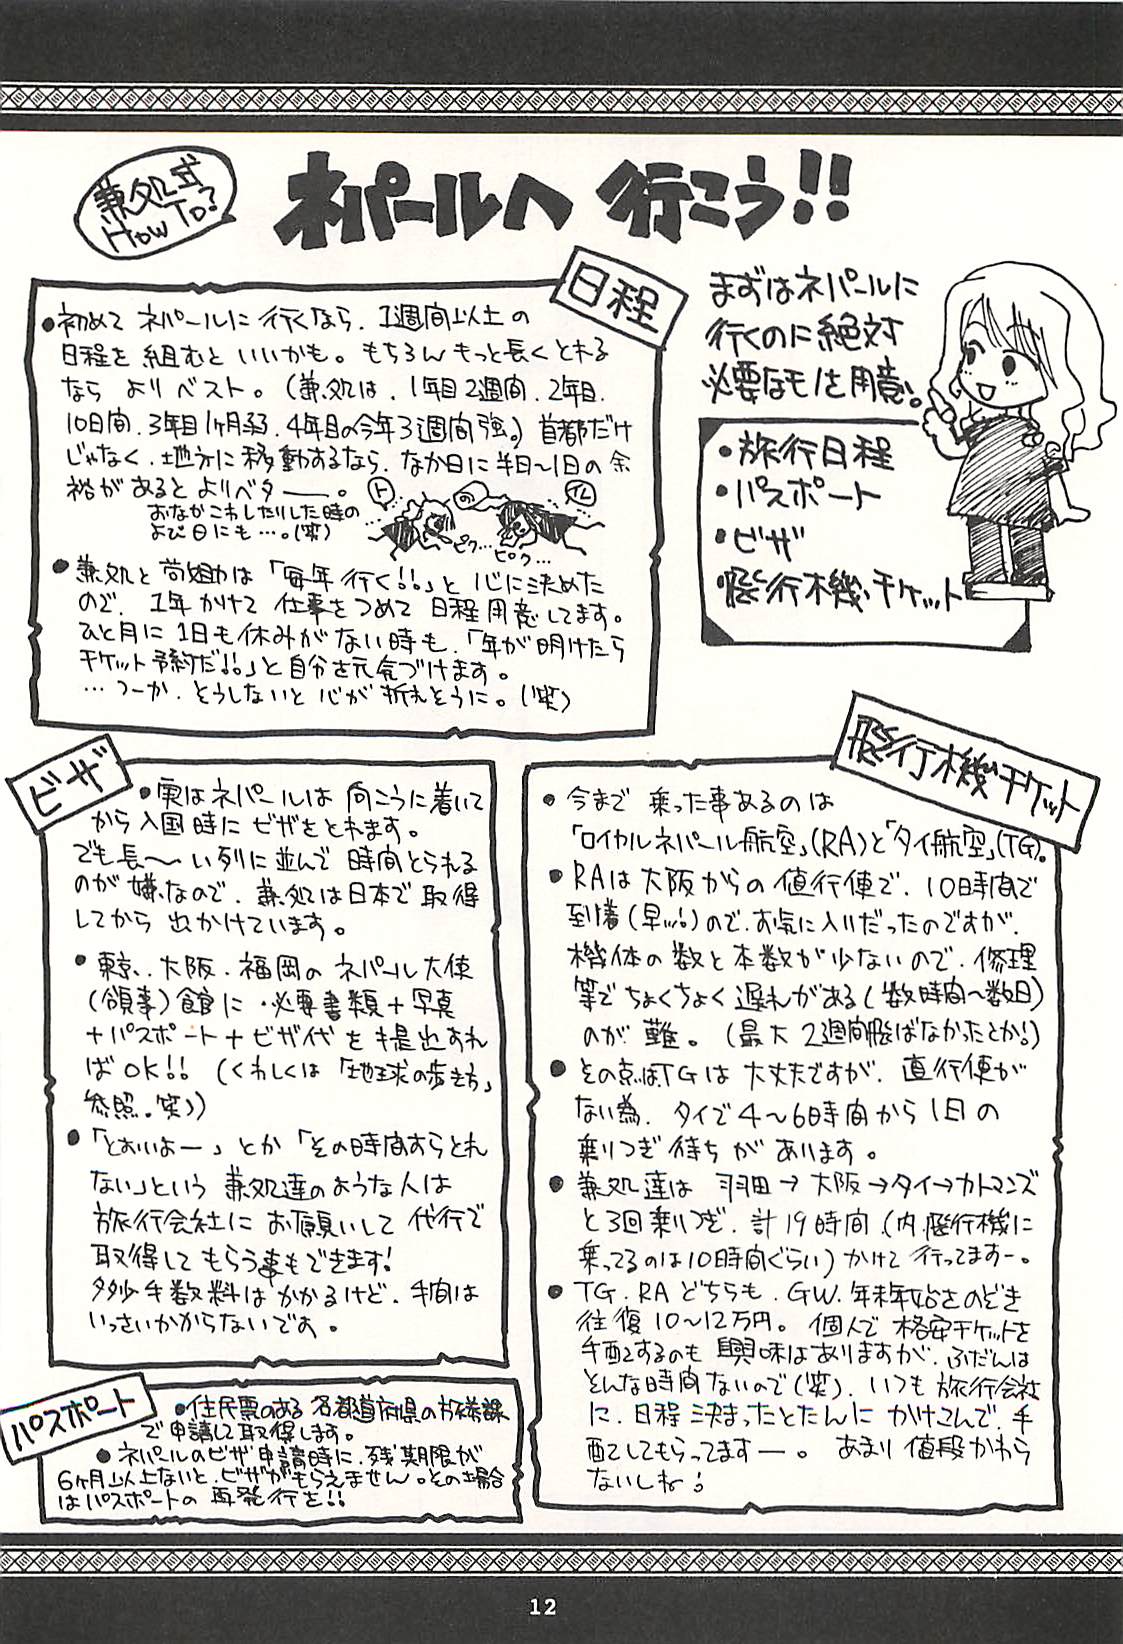 兼処式
HOW TO?
ネパールへ 行こう!!
まずはネパールに
行くのに絶対
必要なモノを用意。
・旅行日程
・パスポート
・ビザ
・飛行機チケット
日程
●初めて ネパールに 行くなら、1週間以上の
日程を 組むと いいかも。もちろん もっと長くとれる
なら よりベスト。(兼処は、1年目2週間、2年目
10日間、3年目1ヶ月弱、4年目の今年3週間強。) 首都だけ
じゃなく、地方に移動するなら、なか日に半日〜1日の余
裕があると よりベター――。
おなかこわしたりした時の
よび日にも…。(笑)
ト
の
イレ
ピク…ピク…
●兼処と 苘助は「毎年 行く!!」と 心に決めた
ので、1年かけて 仕事をつめて 日程用意してます。
ひと月に 1日も休みがない時も、「年が明けたら
チケット予約だ!!」と 自分を元気づけます。
…つーか、そうしないと 心が 折れそうに。(笑)
ビザ
●実はネパールは 向こうに着いて
から入国時に ビザをとれます。
でも長〜い列に並んで 時間とられる
のが嫌なので、兼処は日本で取得
してから 出かけています。
●東京、大阪、福岡の ネパール大使
(領事)館に、必要書類+写真
+パスポート+ビザ代を 提出すれ
ば OK!! (くわしくは「地球の歩き方」
参照。笑))
●「とおいよー」とか「その時間すらとれ
ない」という 兼処達のような人は
旅行会社に お願いして 代行で
取得して もらう事もできます!
多少手数料は かかるけど、手間は
いっさいかからないです。
パスポート
●住民票のある 各都道府県の旅券課
で 申請して 取得します。
●ネパールのビザ 申請時に、残期限が
6ヶ月以上ないと、ビザがもらえません。その場合
はパスポートの 再発行を!!
飛行機チケット
●今まで 乗った事あるのは
「ロイヤルネパール航空」(RA)と「タイ航空」(TG)。
●RAは大阪からの 直行便で、10時間で
到着(早っ!)ので、お気に入りだったのですが、
機体の数と本数が少ないので、修理
等で ちょくちょく 遅れがある(数時間〜数日)
のが 難。(最大 2週間飛ばなかったとか!)
●その点TGは 大丈夫ですが、直行便が
ない為、タイで 4〜6時間から 1日の
乗りつぎ待ちが あります。
●兼処達は 羽田→大阪→タイ→カトマンズ
と 3回乗りつぎ、計19時間 (内、飛行機に
乗ってるのは10時間ぐらい) かけて 行ってますー。
●TG、RA どちらも、GW、年末年始さのぞき
往復 10〜12万円。個人で 格安チケットを
手配するのも 興味はありますが、ふだんは
そんな時間ないので(笑)、いつも 旅行会社
に、日程 決まったとたんに かけこんで、手
配してもらってますー。あまり 値段かわら
ないしね!
12